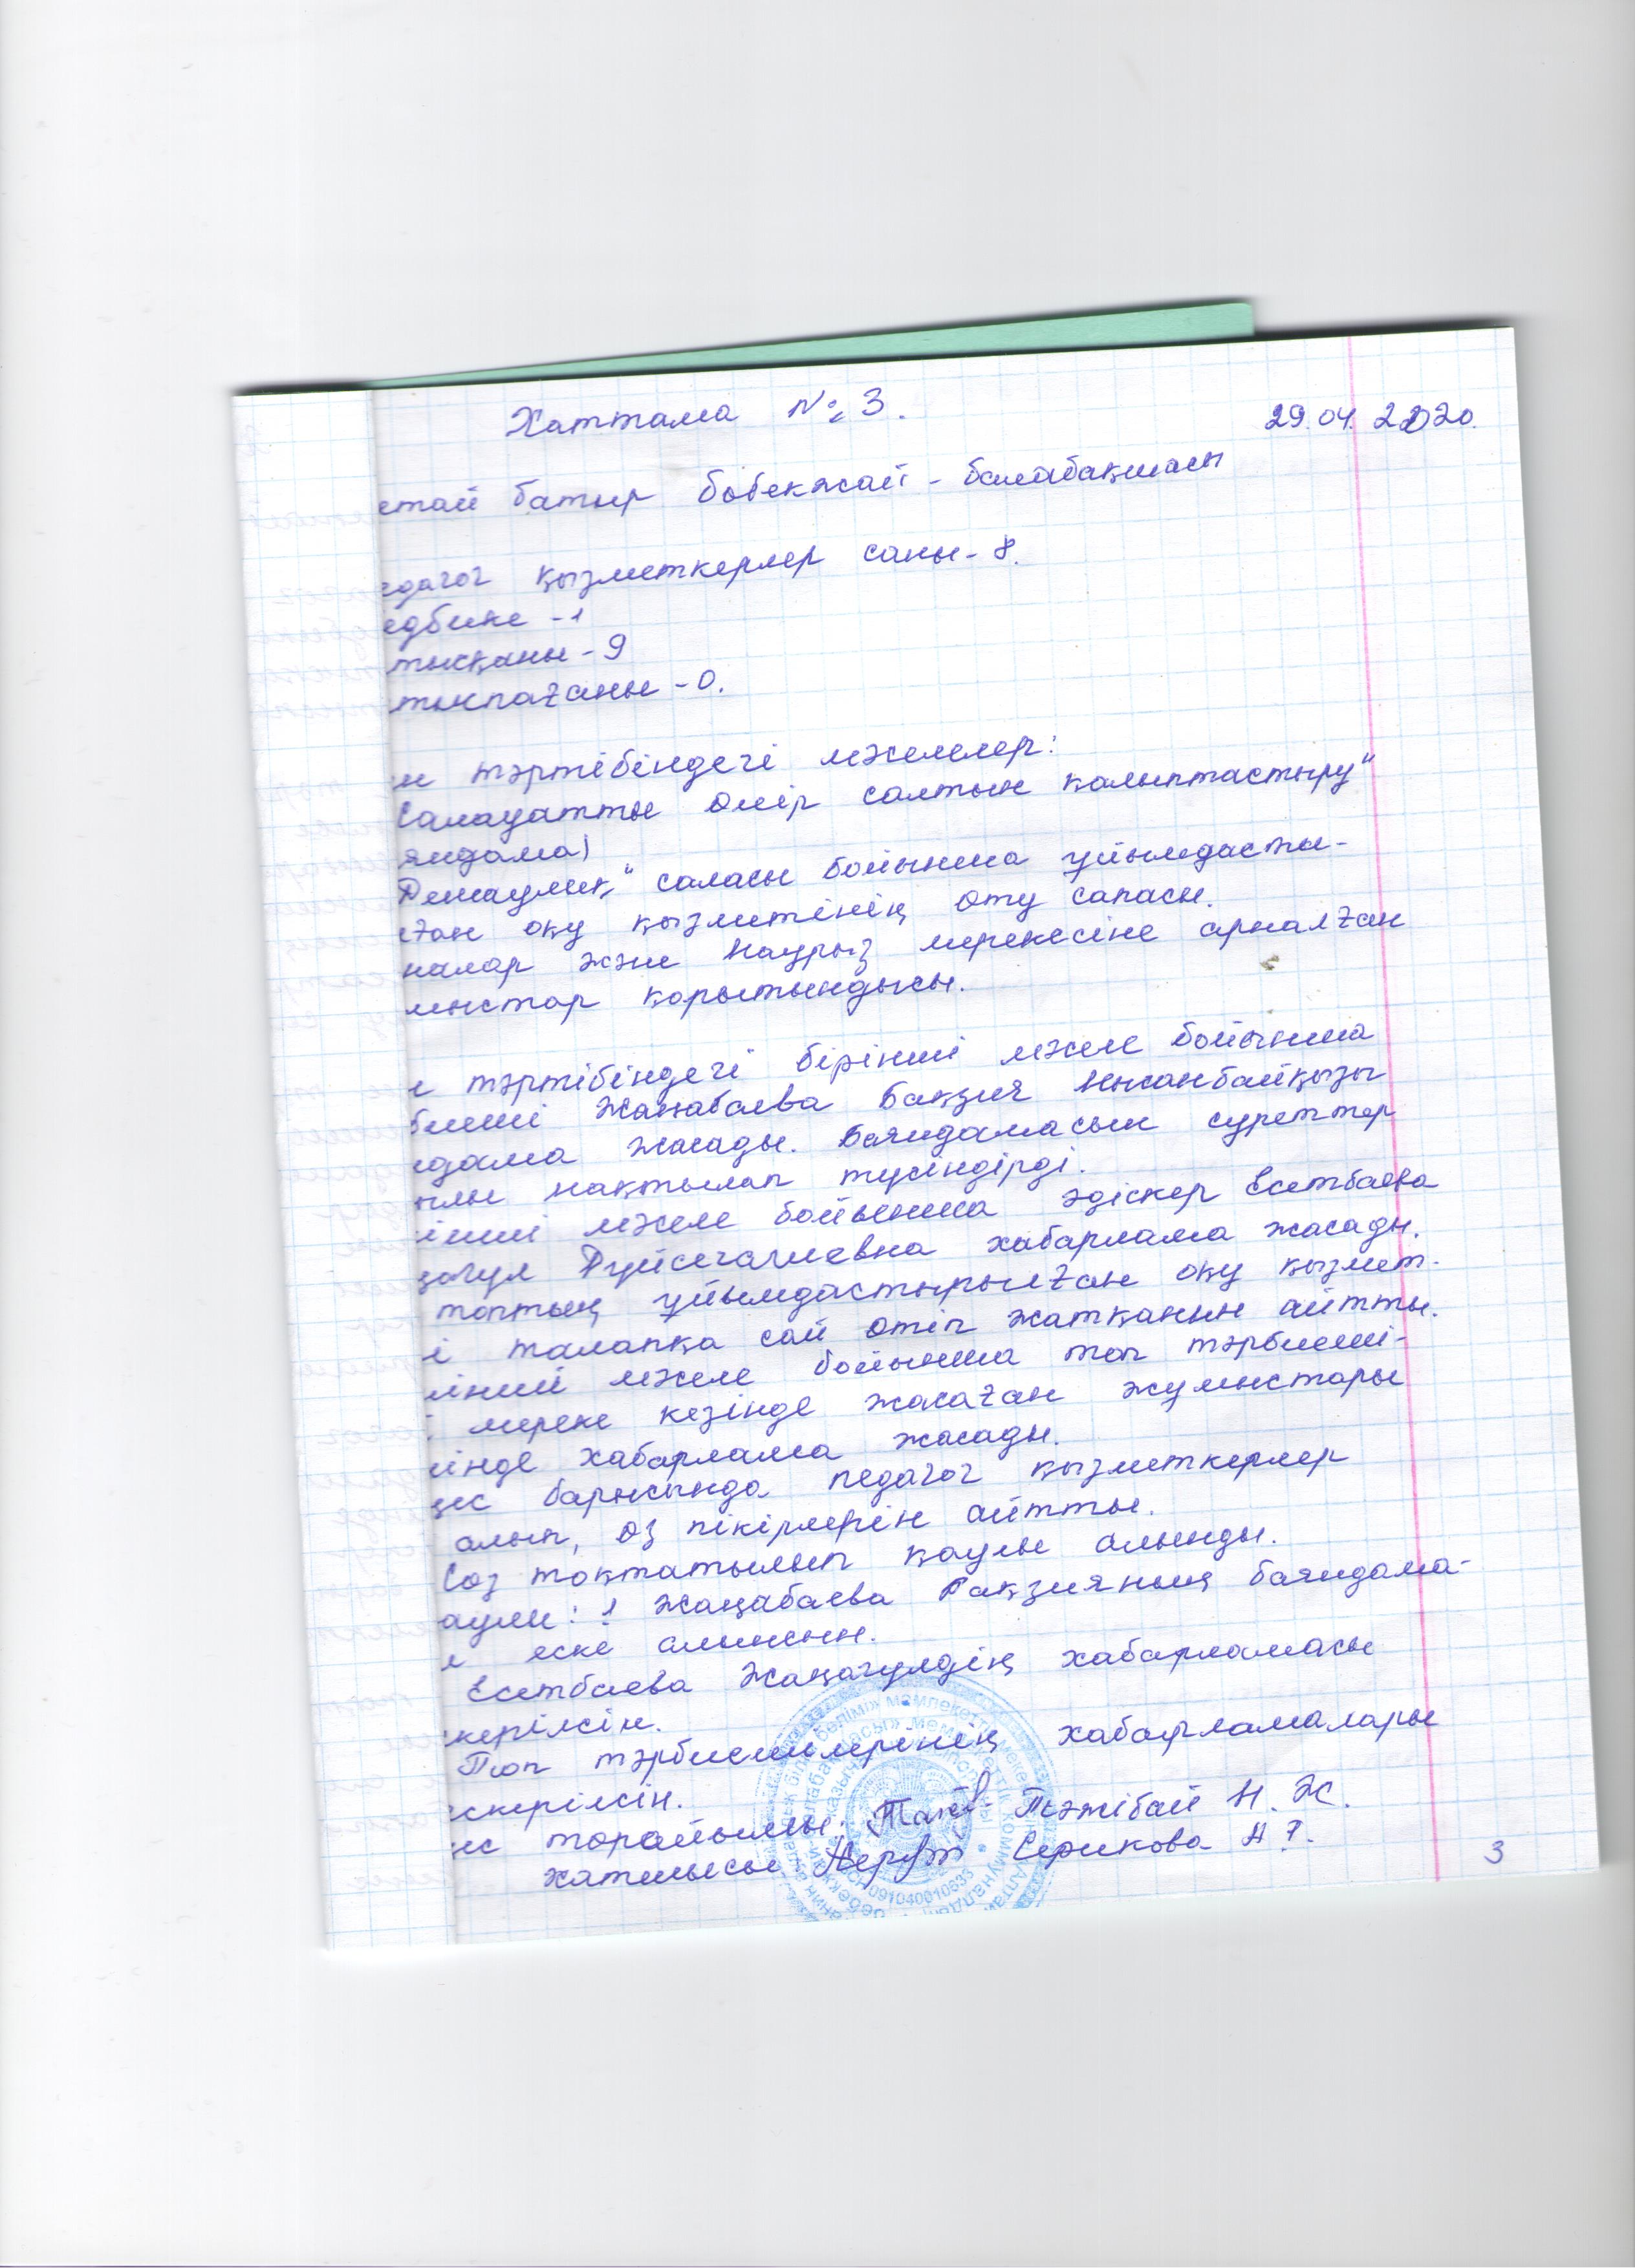 Хаттама №3.
29.04.2020.
етай батыр бөбекжай - балабақшасы
едагог қызметкерлер саны - 8.
едбике - 1
тысқаны - 9
тыспағаны - 0.
н тәртібіндегі мәселелер:
Саламатты өмір салтын қалыптастыру"
яндама)
Денсаулық" саласы бойынша ұйымдасты-
ған оқу қызметінің өту сапасы.
налар және Наурыз мерекесіне арналған
мыстар қорытындысы.
н тәртібіндегі бірінші мәселе бойынша
биеші Жаңабаева Бақзия Нысанбайқызы
ндама жасады. Баяндамасын суреттер
ылы нақтылап түсіндірді.
інші мәселе бойынша әдіскер Есетбаева
ңагүл Дүйсегалиевна хабарлама жасады.
топтың ұйымдастырылған оқу қызмет-
і талапқа сай өтіп жатқанын айтты.
інші мәселе бойынша топ тәрбиеші-
мереке кезінде жасаған жұмыстары
інде хабарлама жасады.
ңес барысында педагог қызметкерлер
алып, өз пікірлерін айтты.
Сөз тоқтатылып қаулы алынды.
аулы: 1 Жаңабаева Бақзияның баяндама-
ы еске алынсын.
Есетбаева Жаңагүлдің хабарламасы
керілсін.
Топ тәрбиешілерінің хабарламалары
скерілсін.
ңес төрайымы: Тәжібай Н. Ж.
хатшысы Серикова А Т.
091040010633
3